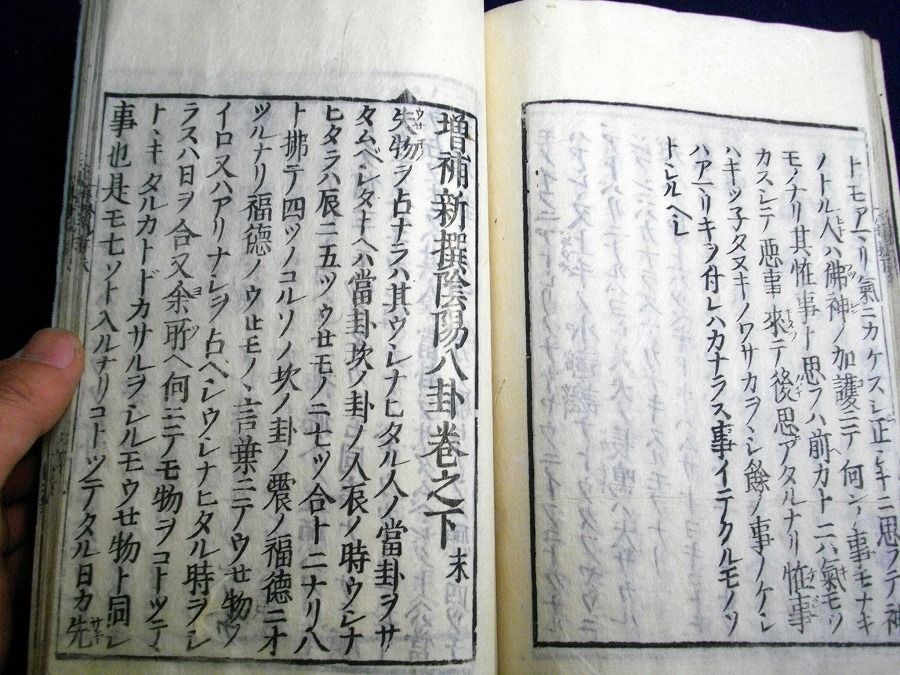 トモアマリ氣ニカケスレ正シキニ思フテ神
ノトル人ハ佛神ノ加護ニテ何シノ事モナキ
モノナリ其恠事ト思フハ前カトニハ氣モツ
カスレテ悪事來テ後思アタルナリ恠事
ハキツ子タヌキノワサカヲレ餘ノ事ノケレ
ハアマリキヲ付レハカナラス事イテクルモノソ
トレルヘレ
増補新撰陰陽八卦卷之下 末
失物ヲ占ナラハ其ウレナヒタル人ノ當卦ヲサ
タムヘレタトヘハ當卦坎ノ卦ノ人辰ノ時ウレナ
ヒタラハ辰ニ五ツウセモノニ七ツ合十二ナリ八
ト拂テ四ツノコルソノ坎ノ卦ノ震ノ福徳ニオ
ツルナリ福徳ノウせモノヽ言葉ニテウせ物ノ
イロ又ハアリナレヲ占ベレウレナヒタル時ヲレ
ラスハ日ヲ合又余所ヘ何ニテモ物ヲコトツテ
トヽキタルカトドカサルヲレルモウせ物ト同レ
事也是モ七ソト入ルナリコトツテタル日カ先